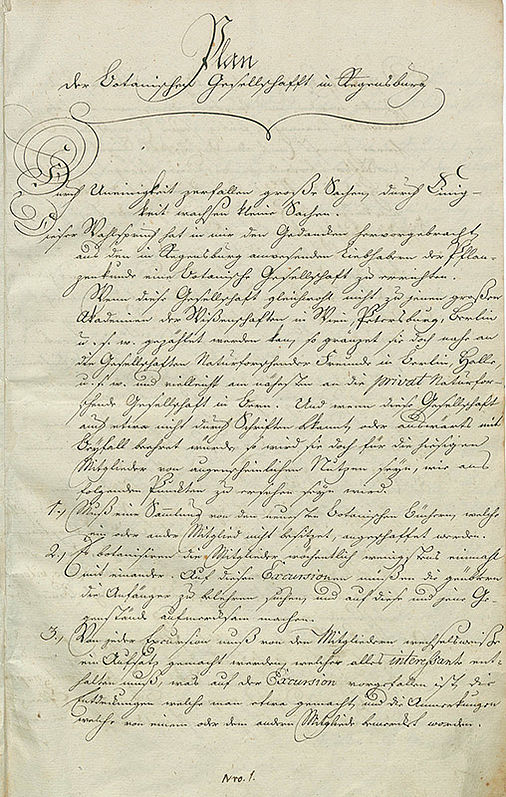 Plan
der Botanischen Gesellschafft in Regensburg
Durch Uneinigkeit zerfallen große Sachen, durch Einig-
keit wachsen kleine Sachen.
Dieser Wahlspruch hat in mir den Gedanken hervorgebracht,
aus den in Regensburg anwesenden Liebhabern der Pflan-
zenkunde eine Botanische Gesellschaft zu errichten.
Wenn diese Gesellschaft gleichwohl nicht zu jenen großen
Akademien der Wißenschaften in Wien, Petersburg, Berlin
u. s. w. gezählet werden kan, so gränzet sie doch nahe an
die Gesellschaften Naturforschender Freunde in Berlin, Halle,
u. s. w. und vielleicht am nähesten an die privat Naturfor-
schende Gesellschaft in Bern. Und wenn diese Gesellschaft
auch etwa nicht durch Schriften bekannt, oder anderwärts mit
Beyfall beehret würde, so wird sie doch für die hiesigen
Mitglieder von augenscheinlichen Nutzen seyn, wie aus
folgenden Punkten zu ersehen seyn wird.
1., Muß eine Sammlung von den neuesten Botanischen Büchern, welche
ein oder ander Mitglied nicht besitzet, angeschaffet werden.
2., Es botanisiren die Mitglieder wöchentlich wenigstens einmahl
mit einander. Auf diesen Excursionen müßen die geübtern
die Anfänger zu belehren suchen, und auf diese und jene Ge-
genstände aufmerksam machen.
3., Von jeder Excursion muß von den Mitgliedern wechselsweiße
ein Aufsatz gemacht werden, welcher alles interessante ent-
halten muß, was auf der Excursion vorgefallen ist, die
Entdekungen welche man etwa gemacht, und die Anmerkungen
welche von einem oder dem andern Mitgliede bemerket worden.
Nro. 1.